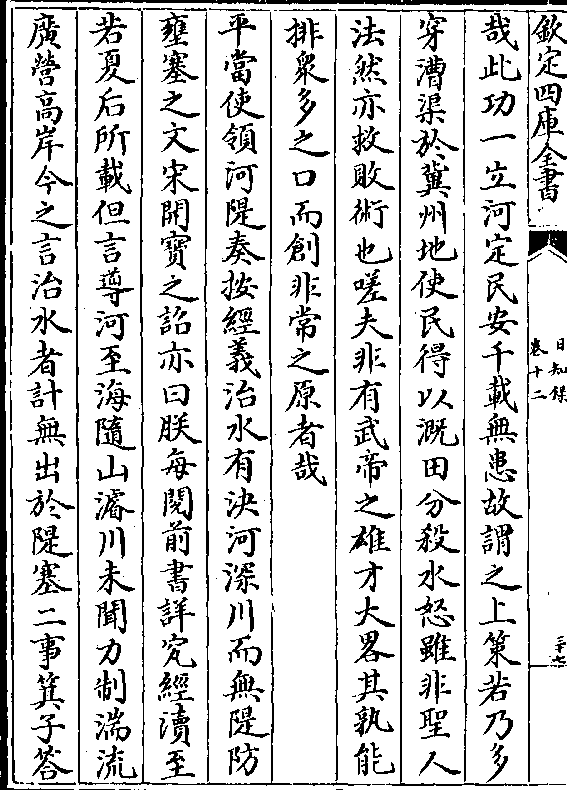 欽定四庫全書
日知錄
卷十二
三十七
哉此功一立河定民安千載無患故謂之上策若乃多
穿漕渠於冀州地使民得以溉田分殺水怒雖非聖人
法然亦救敗術也嗟夫非有武帝之雄才大畧其孰能
排衆多之口而創非常之原者哉
平當使領河隄奏按經義治水有決河深川而無隄防
壅塞之文宋開寶之詔亦曰朕每閱前書詳究經瀆至
若夏后所載但言導河至海隨山濬川未聞力制湍流
廣營高岸今之言治水者計無出於隄塞二事箕子答